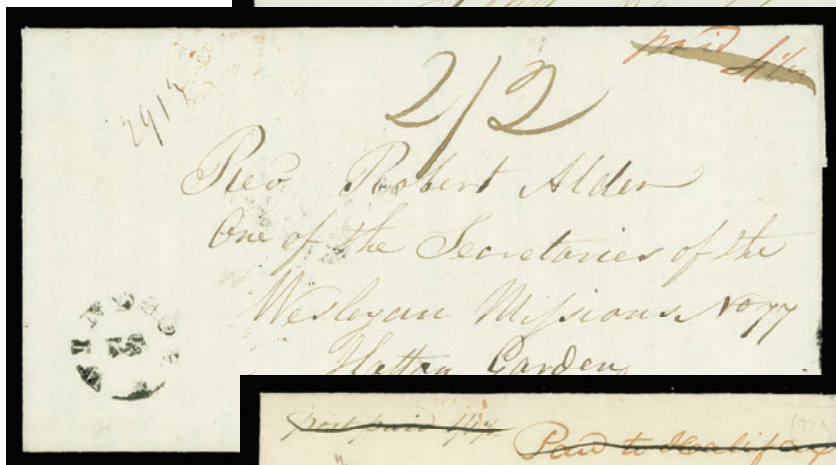 paid
2/2
Revd. Robert Alder
One of the Secretaries of the
Wesleyan Missions No 77
Hatton Garden
WINDSOR
post paid
Paid to Halifax